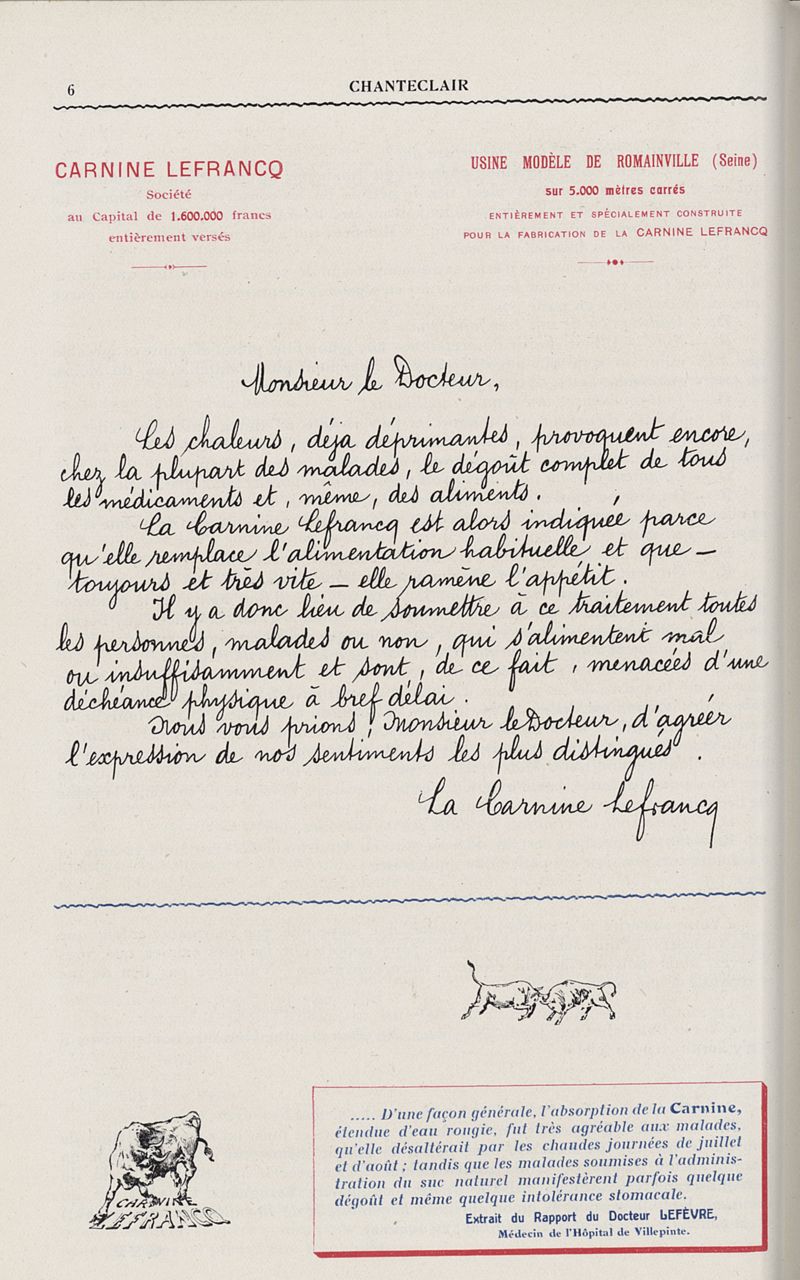 6
CHANTECLAIR
CARNINE LEFRANCQ
Société
au Capital de 1.600.000 francs
entièrement versés
USINE MODÈLE DE ROMAINVILLE (Seine)
sur 5.000 mètres carrés
ENTIÈREMENT ET SPÉCIALEMENT CONSTRUITE
POUR LA FABRICATION DE LA CARNINE LEFRANCQ
Monsieur le Docteur,
Les chaleurs, déja déprimantes, provoquent encore,
chez la plupart des malades, le dégoût complet de tous
les médicaments et, même, des aliments.
La Carnine Lefrancq est alors indiquée parce
qu'elle remplace l'alimentation habituelle et que —
toujours et très vite — elle ramène l'appétit.
Il y a donc lieu de soumettre à ce traitement toutes
les personnes, malades ou non, qui s'alimentent mal
ou insuffisamment et sont, de ce fait, menacées d'une
déchéance physique à bref délai.
Nous vous prions, Monsieur le Docteur, d'agréer
l'expression de nos sentiments les plus distingués.
La Carnine Lefrancq
CARNINE
LEFRANCQ
..... D'une façon générale, l'absorption de la Carnine,
étendue d'eau rougie, fut très agréable aux malades,
qu'elle désaltérait par les chaudes journées de juillet
et d'août ; tandis que les malades soumises à l'adminis-
tration du suc naturel manifestèrent parfois quelque
dégoût et même quelque intolérance stomacale.
Extrait du Rapport du Docteur LEFÈVRE,
Médecin de l'Hôpital de Villepinte.